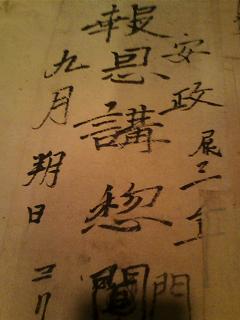 安政辰三年
報恩講惣
九月朔日ヨリ